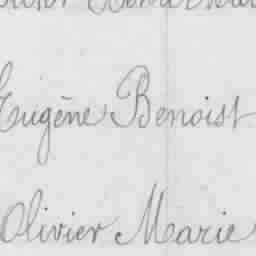 Eugène Benoist
Olivier Marie